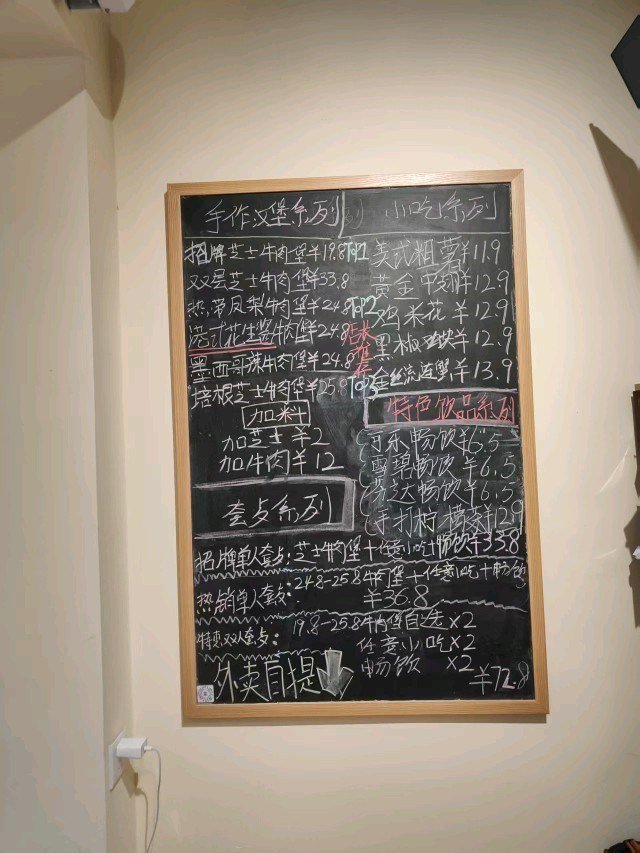 手作汉堡系列
招牌芝士牛肉堡¥19.8 TOP1
双层芝士牛肉堡¥33.8
热带凤梨牛肉堡¥24.8 TOP2
港式花生酱牛肉堡¥24.8 店长推荐
墨西哥辣牛肉堡¥24.8
培根芝士牛肉堡¥25.8 TOP3
加料
加芝士 ¥2
加牛肉 ¥12
小吃系列
美式粗薯¥11.9
黄金 ¥12.9
鸡米花 ¥12.9
黑椒 ¥12.9
金丝 ¥13.9
特色饮品系列
可乐畅饮¥6.5
雪碧畅饮 ¥6.5
芬达畅饮¥6.5
手打柠檬茶¥12.9
套点系列
招牌单人套点:芝士牛肉堡+任意小吃+畅饮¥33.8
热销单人套点:24.8-25.8牛肉堡+任意小吃+畅饮
¥36.8
特惠双人套点:19.8-25.8牛肉堡自选×2
任意小吃×2
畅饮 ×2
¥72.8
外卖自提